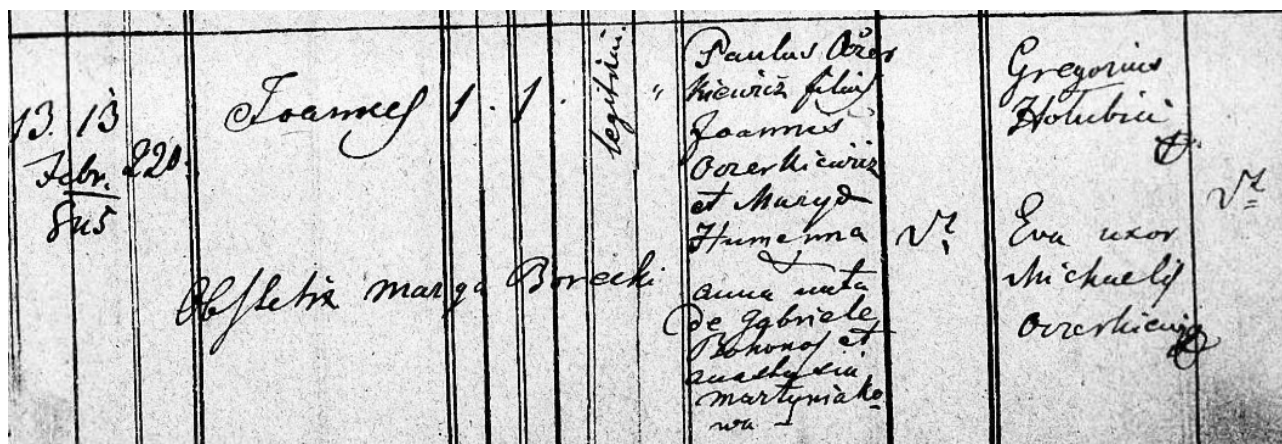 13. 13
Febr.
845
220.
Joannes 1. 1. legitim. "
Obstetrix Marya Borecki
Paulus Ozer
kiewicz filius
Joannis
Ozerkiewicz
et Marya
Humenna
Anna nata
de Gabriele
Bohonos et
Anastasia
Martyniako
wa
Vt
Gregorius
Holubici
Eva uxor
Michaelis
Ozerkiewicz
Vt